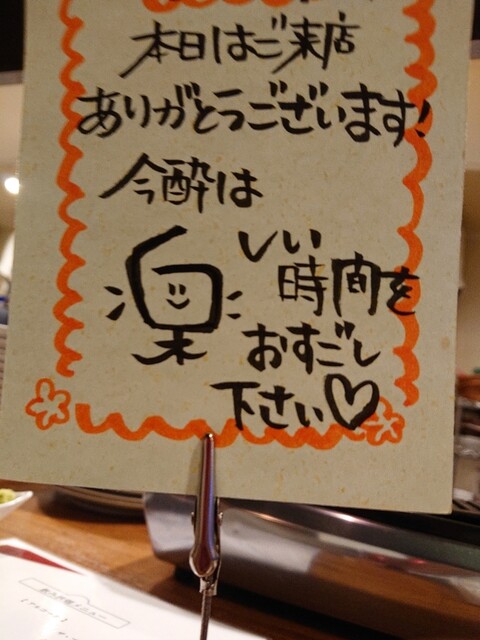 本日はご来店
ありがとうございます!
今酔は
楽しい
時間を
おすごし
下さい♡